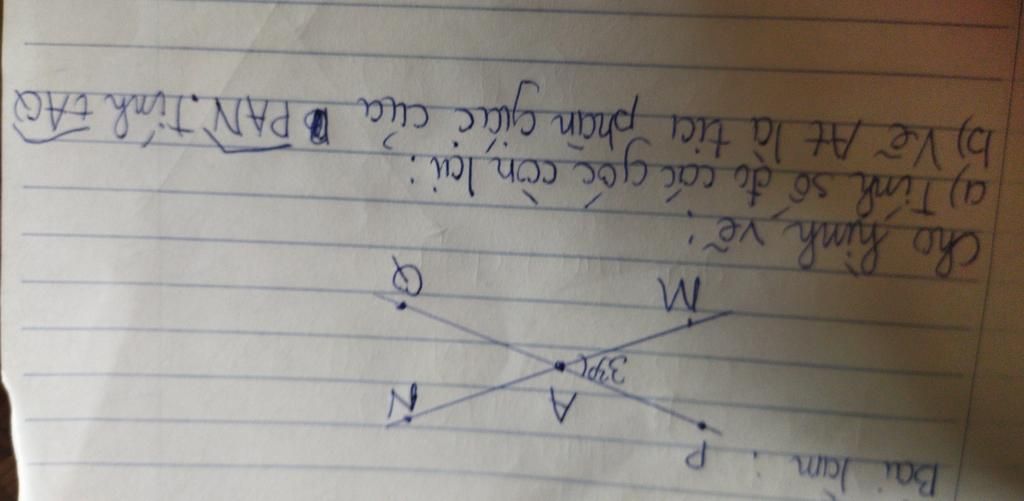 Bài làm :
P
A
N
34°
M
Q
Cho hình vẽ:
a) Tính số đo các góc còn lại:
b) Vẽ At là tia phân giác của PAN. Tính tAQ